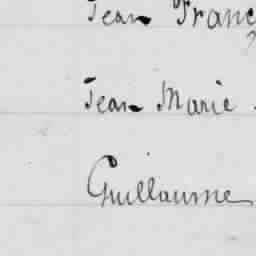 Jean Franc
Jean Marie
Guillaume